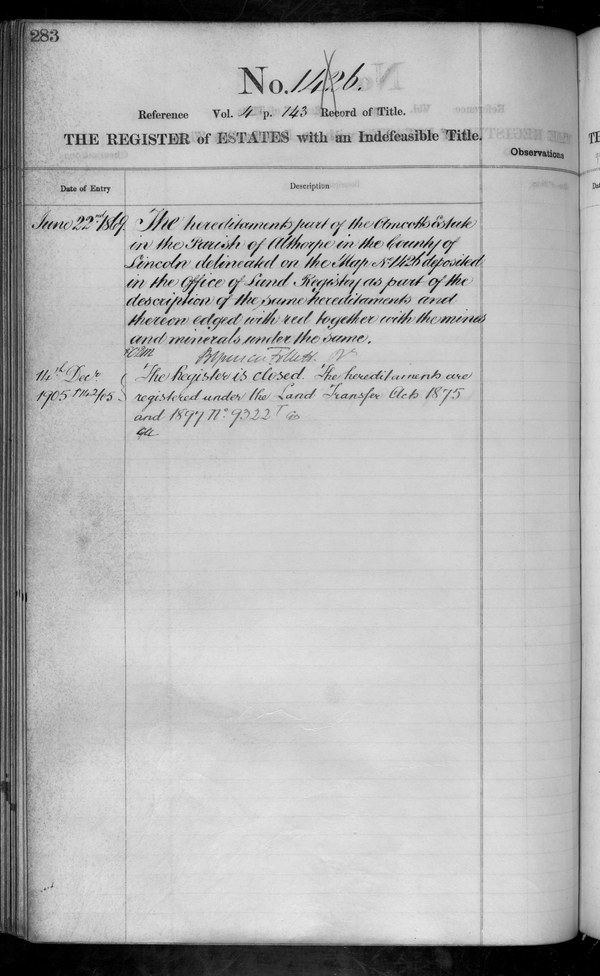 283
No. 1426.
Reference Vol. 4 p. 143 Record of Title.
THE REGISTER of ESTATES with an Indefeasible Title.
Observations
Date of Entry Description
June 22nd 1869. The hereditaments part of the Amcotts Estate
in the Parish of Althorpe in the County of
Lincoln delineated on the Map No 1426 deposited
in the Office of Land Registry as part of the
description of the same hereditaments and
thereon edged with red together with the mines
and minerals under the same.
Follett
14th Decr The Register is closed. The hereditaments are
1905 registered under the Land Transfer Acts 1875
and 1897 No. 9322